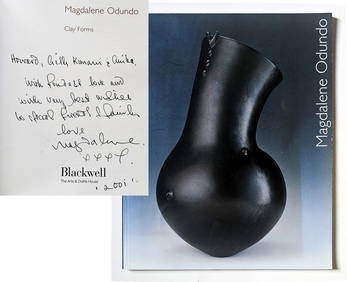 Magdalene Odundo
Clay Forms
Howard, Kimani & Anika
With fondest love and
with very best wishes
to special friends &
love
Magdalene
xxxx
Blackwell
The Arts & Crafts House
2001
Magdalene Odundo